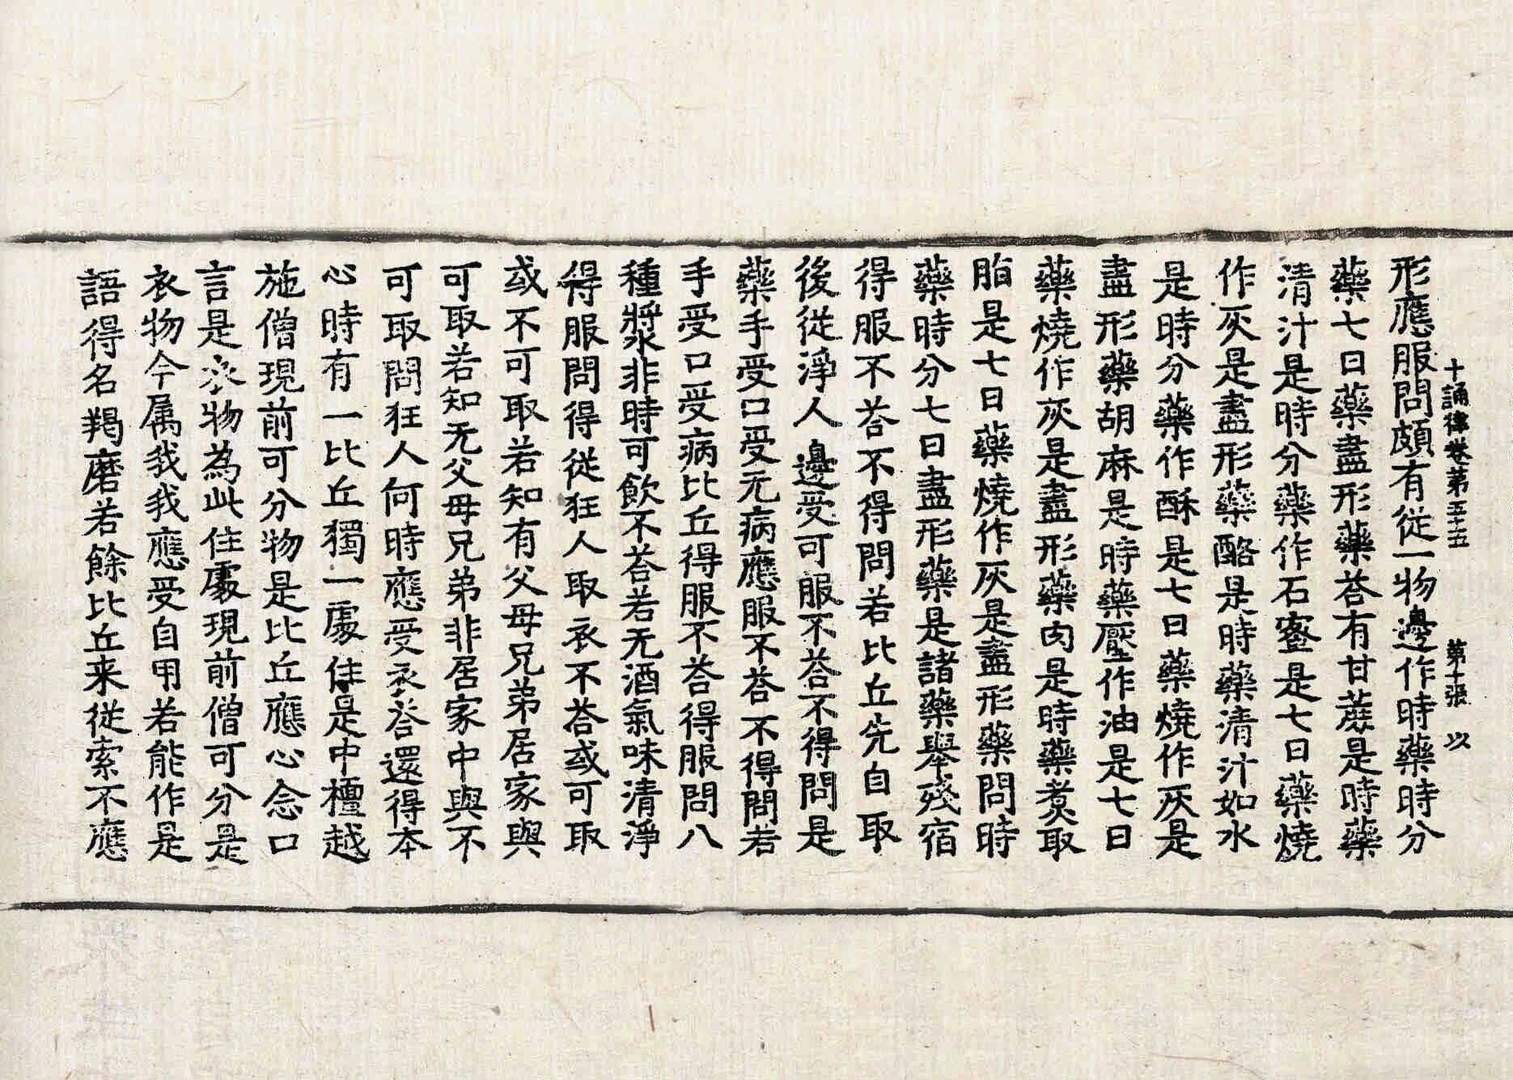 十誦律卷第五十五 第十張 以
形應服問頗有從一物邊作時藥時分
藥七日藥盡形藥荅有甘蔗是時藥
清汁是時分藥作石蜜是七日藥燒
作灰是盡形藥酪是時藥清汁如水
是時分藥作酥是七日藥燒作灰是
盡形藥胡麻是時藥壓作油是七日
藥燒作灰是盡形藥肉是時藥煑取
脂是七日藥燒作灰是盡形藥問時
藥時分七日盡形藥是諸藥舉殘宿
得服不荅不得問若比丘先自取
後從淨人邊受可服不荅不得問是
藥手受口受无病應服不荅不得問若
手受口受病比丘得服不荅得服問八
種漿非時可飲不荅若无酒氣味清淨
得服問得從狂人取衣不荅或可取
或不可取若知有父母兄弟居家與
可取若知无父母兄弟非居家中與不
可取問狂人何時應受衣荅還得本
心時有一比丘獨一處住是中檀越
施僧現前可分物是比丘應心念口
言是衣物為此住處現前僧可分是
衣物今属我我應受自用若能作是
語得名羯磨若餘比丘来從索不應